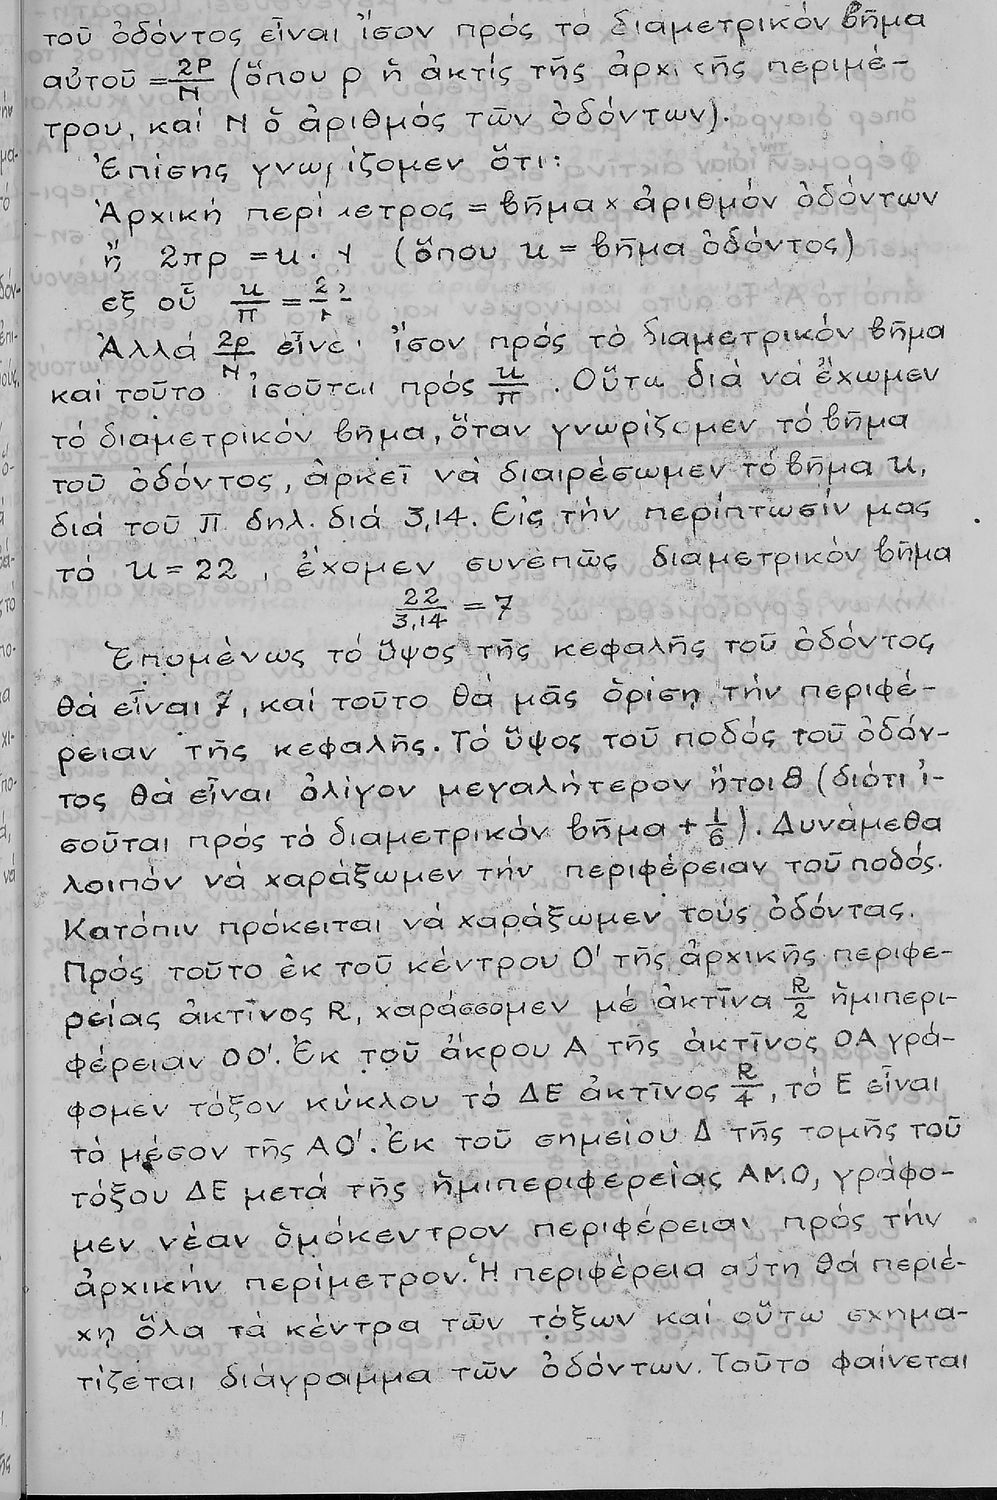 τοῦ ὀδόντος εἶναι ἴσον πρός τό διαμετρικόν βῆμα
αὐτοῦ = 2Ρ/Ν (ὅπου ρ ἡ ἀκτίς τῆς ἀρχικῆς περιμέ-
τρου, καί Ν ὁ ἀριθμός τῶν ὀδόντων).
Ἐπίσης γνωρίζομεν ὅτι:
Ἀρχική περίμετρος = βῆμα × ἀριθμόν ὀδόντων
ἤ 2πρ = u · Ν (ὅπου u = βῆμα ὀδόντος)
εξ οὗ u/π = 2ρ/Ν
Ἀλλά 2ρ/Ν εἶνε ἴσον πρός τό διαμετρικόν βῆμα
καί τοῦτο ἰσοῦται πρός u/π. Οὕτω διά νά ἔχωμεν
τό διαμετρικόν βῆμα, ὅταν γνωρίζομεν τό βῆμα
τοῦ ὀδόντος, ἀρκεῖ νά διαιρέσωμεν τό βῆμα u,
διά τοῦ π δηλ. διά 3,14. Εἰς τήν περίπτωσίν μας
τό u = 22, ἔχομεν συνεπῶς διαμετρικόν βῆμα
22/3,14 = 7
Ἑπομένως τό ὕψος τῆς κεφαλῆς τοῦ ὀδόντος
θά εἶναι 7, καί τοῦτο θά μᾶς ὁρίσῃ τήν περιφέ-
ρειαν τῆς κεφαλῆς. Τό ὕψος τοῦ ποδός τοῦ ὀδόν-
τος θά εἶναι ὀλίγον μεγαλήτερον ἤτοι 8 (διότι ἰ-
σοῦται πρός τό διαμετρικόν βῆμα + 1/6). Δυνάμεθα
λοιπόν νά χαράξωμεν τήν περιφέρειαν τοῦ ποδός.
Κατόπιν πρόκειται νά χαράξωμεν τούς ὀδόντας.
Πρός τοῦτο ἐκ τοῦ κέντρου Ο' τῆς ἀρχικῆς περιφε-
ρείας ἀκτῖνος R, χαράσσομεν μέ ἀκτῖνα R/2 ἡμιπερι-
φέρειαν ΟΟ'. Ἐκ τοῦ ἄκρου Α τῆς ἀκτῖνος ΟΑ γρά-
φομεν τόξον κύκλου τό ΔΕ ἀκτῖνος R/4, τό Ε εἶναι
τό μέσον τῆς ΑΟ'. Ἐκ τοῦ σημείου Δ τῆς τομῆς τοῦ
τόξου ΔΕ μετά τῆς ἡμιπεριφερείας ΑΜΟ, γράφο-
μεν νέαν ὁμόκεντρον περιφέρειαν πρός τήν
ἀρχικήν περίμετρον. Ἡ περιφέρεια αὕτη θά περιέ-
χῃ ὅλα τά κέντρα τῶν τόξων καί οὕτω σχημα-
τίζεται διάγραμμα τῶν ὀδόντων. Τοῦτο φαίνεται